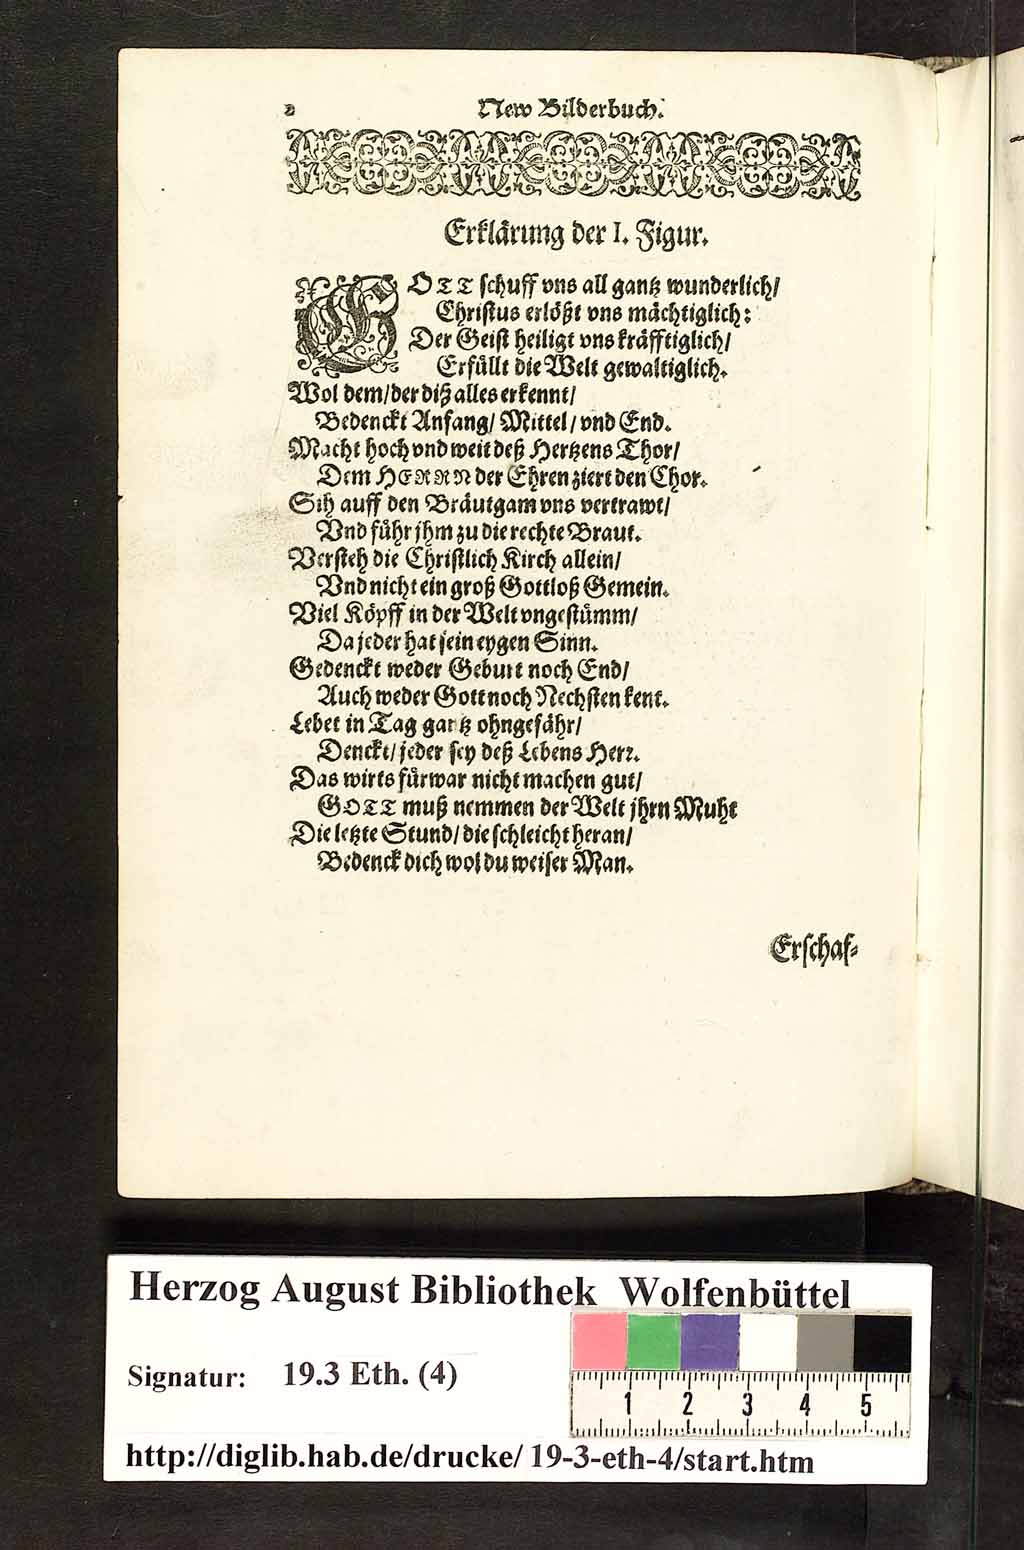 2 New Bilderbuch.
Erklärung der I. Figur.
GOTT schuff vns all gantz wunderlich/
Christus erlößt vns mächtiglich:
Der Geist heiligt vns kräfftiglich/
Erfüllt die Welt gewaltiglich.
Wol dem/ der diß alles erkennt/
Bedenckt Anfang/ Mittel/ vnd End.
Macht hoch vnd weit deß Hertzens Thor/
Dem HERRN der Ehren ziert den Chor.
Sih auff den Bräutgam vns vertrawt/
Vnd führ jhm zu die rechte Braut.
Versteh die Christlich Kirch allein/
Vnd nicht ein groß Gottloß Gemein.
Viel Köpff in der Welt vngestümm/
Da jeder hat sein eygen Sinn.
Gedenckt weder Geburt noch End/
Auch weder Gott noch Nechsten kent.
Lebet in Tag gantz ohngefähr/
Denckt/ jeder sey deß Lebens Herr.
Das wirts fürwar nicht machen gut/
GOTT muß nemmen der Welt jhrn Muht
Die letzte Stund/ die schleicht heran/
Bedenck dich wol du weiser Man.
Erschaf-
Herzog August Bibliothek Wolfenbüttel
Signatur: 19.3 Eth. (4)
1 2 3 4 5
http://diglib.hab.de/drucke/ 19-3-eth-4/start.htm